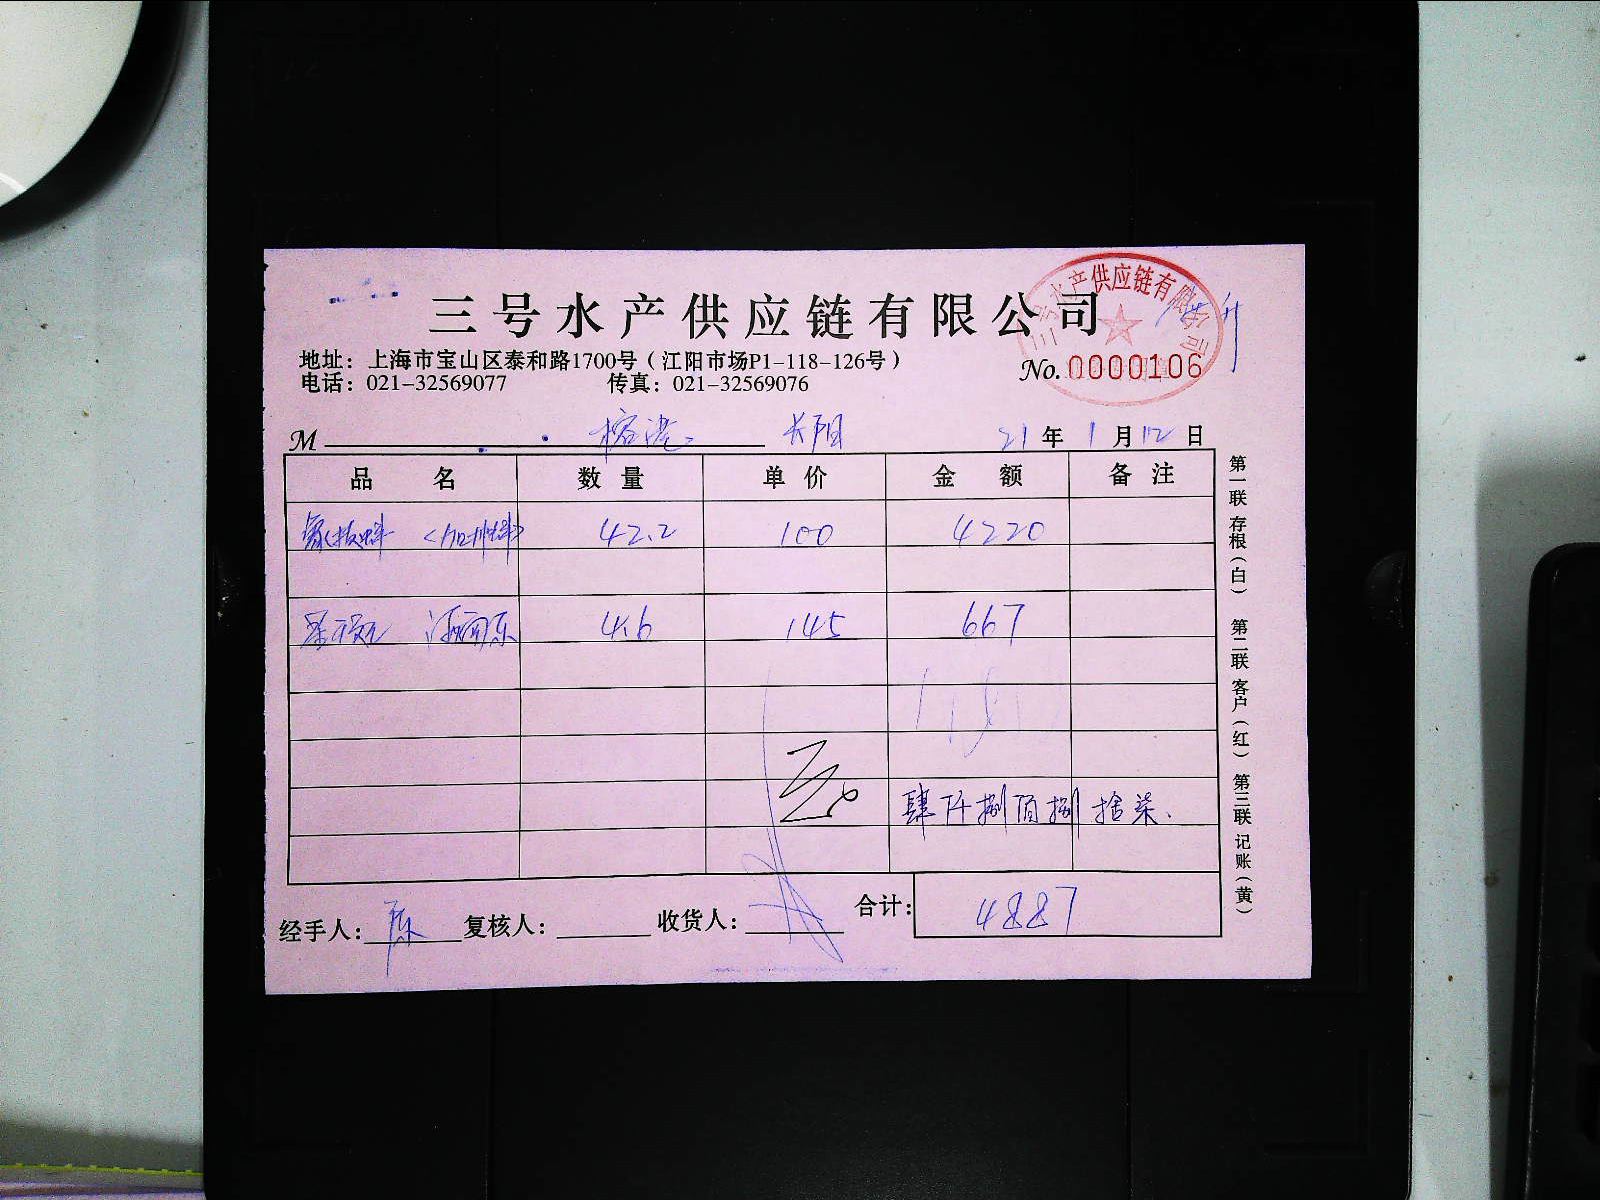 三号水产供应链有限公司
地址：上海市宝山区泰和路1700号（江阳市场P1-118-126号）
电话：021-32569077 传真：021-32569076
No. 0000106
三号水产供应链有限公司
M 榕港 长阳 21年1月12日
品名 数量 单价 金额 备注
42.2 100 4220
4.6 145 667
肆仟捌佰捌拾柒
合计：4887
经手人：陈 复核人： 收货人：
第一联 存根（白） 第二联 客户（红） 第三联 记账（黄）